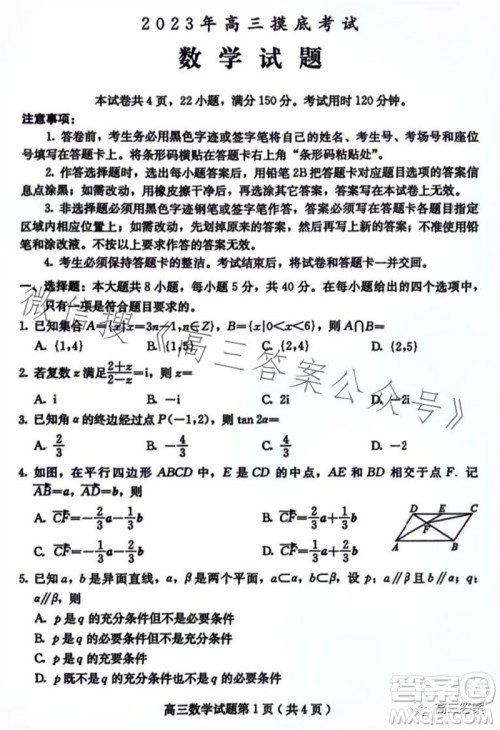 2023年高三摸底考试
数学试题
本试卷共4页，22小题，满分150分。考试用时120分钟。
注意事项：
1. 答卷前，考生务必用黑色字迹或签字笔将自己的姓名、考生号、考场号和座位
号填写在答题卡上。将条形码横贴在答题卡右上角“条形码粘贴处”。
2. 作答选择题时，选出每小题答案后，用铅笔2B把答题卡对应题目选项的答案信
息点涂黑；如需改动，用橡皮擦干净后，再选涂其它答案，答案不能答在试卷上。
3. 非选择题必须用黑色字迹钢笔或签字笔作答，答案必须写在答题卡各题目指定
区域内相应位置上；如需改动，先划掉原来的答案，然后再写上新的答案，不准使用铅
笔和涂改液。不按以上要求作答的答案无效。
4. 考生必须保持答题卡的整洁。考试结束后，将试卷和答题卡一并交回。
一、选择题：本大题共8小题，每小题5分，共40分。在每小题给出的四个选项中，
只有一项是符合题目要求的。
1. 已知集合A={x|x=3n-1,n∈Z}，B={x|0<x<6}，则A∩B=
A. {1,4} B. {1,5} C. {2,4} D. {2,5}
2. 若复数z满足(2+z)/(2-z)=i，则z=
A. i B. -i C. 2i D. -2i
3. 已知角α的终边经过点P(-1,2)，则tan2α=
A. 2/3 B. -4/3 C. 4/3 D. -2
4. 如图，在平行四边形ABCD中，E是CD的中点，AE和BD相交于点F. 记
AB=a，AD=b，则
A. CF=-2/3a-1/3b B. CF=2/3a+1/3b
C. CF=-1/3a-2/3b D. CF=-1/3a+2/3b
D E C
F
A B
5. 已知a，b是异面直线，α，β是两个平面，a⊂α，b⊂β，设p：a∥β且b∥α，
q：α∥β，则
A. p是q的充分条件但不是必要条件
B. p是q的必要条件但不是充分条件
C. p是q的充要条件
D. p既不是q的充分条件也不是q的必要条件
高三数学试题第1页（共4页）
微信搜《高三答案公众号》
答案圈
高三答案